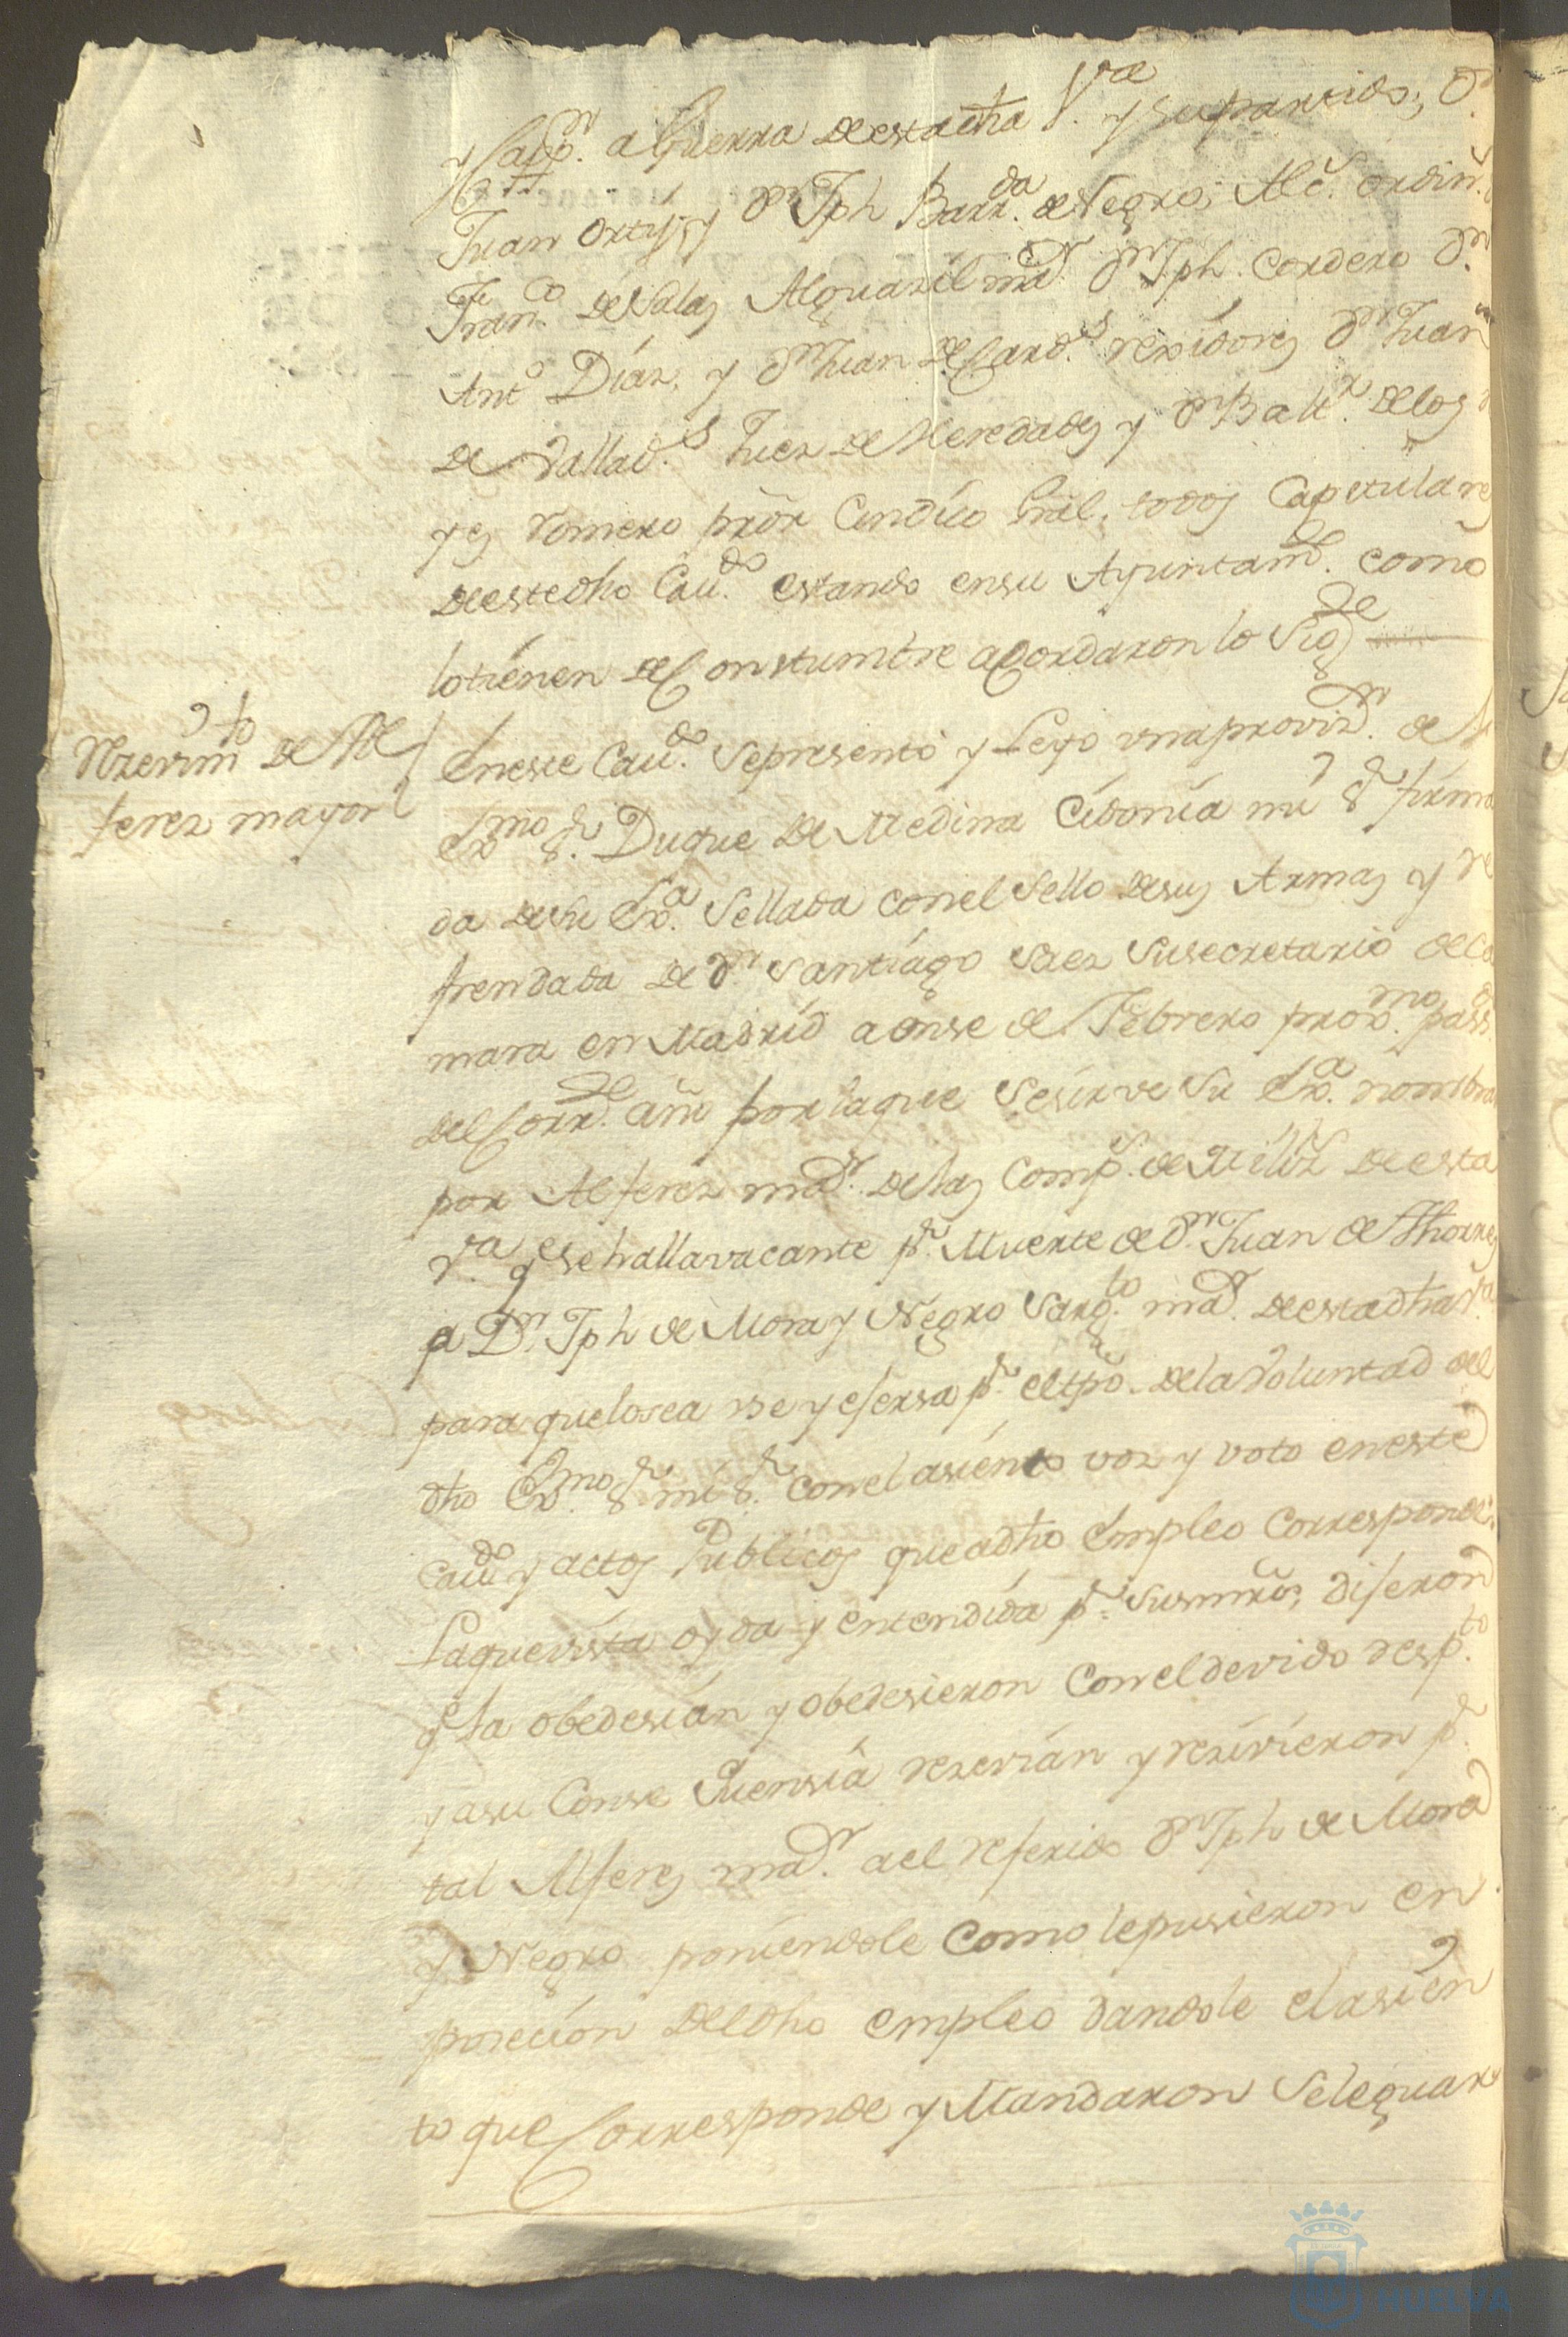 y Cappn. a Guerra de esta dha Va. y su partido; Dn.
Juan Ortiz, y Dn Jph Barrda. de Negro; Alcs. ordins.
Franco. de Salas Alguazil mor. Dn Jph. Cordero Dn.
Anto Díaz, y Dn Juan de Cards. rexidores Dn Juan
de Vallads. Juez de Heredades y Dn Baltr. de los R
yes Romero prõr Cindico Gral. todos Capitulares
de este dho Cavdo. estando en su Ayuntamte. como
lo tienen de Constumbre acordaron lo Sigte
Rzevimto de Al
ferez mayor
En este Cavdo. se presentó y Leyo una providn. de
Exmo Sr. Duque de Medina Cidonia mi Sr firma
da de su Exa. Sellada con el Sello de sus Armas y re
frendada de Dn Santiago Saez su secretario de Ca
mara en Madrid a onse de Febrero proxmo. passdo
del Corrte. añ por la que se sirve Su Exa. nombra
por Alferez mor. de las Comps. de Milizs de esta
Va. qe se halla vacante pr. Muerte de Dn Juan de Thorres
a Dn. Jph de Mora y Negro Sargto. mor. de esta dha Va.
para que lo sea use y esersa pr. el tpo. de la Voluntad del
dho Exmo. Sr mi Sr. con el asiento voz y voto en este
Cavdo y actos Publicos que a dho Empleo Corresponde:
La que vista oyda y entendida pr. sus mrds; diferon
qe la obedesian y obedesieron Con el devido respto.
y a su Conse Quensia rezevian y rezivieron pr.
tal Alferes mor. a el referido Dn Jph de Mora
y Negro poniendole como le pusieron en
posecion del dho empleo dandole el asien
to que Corresponde y Mandaron se le guar
HUELVA